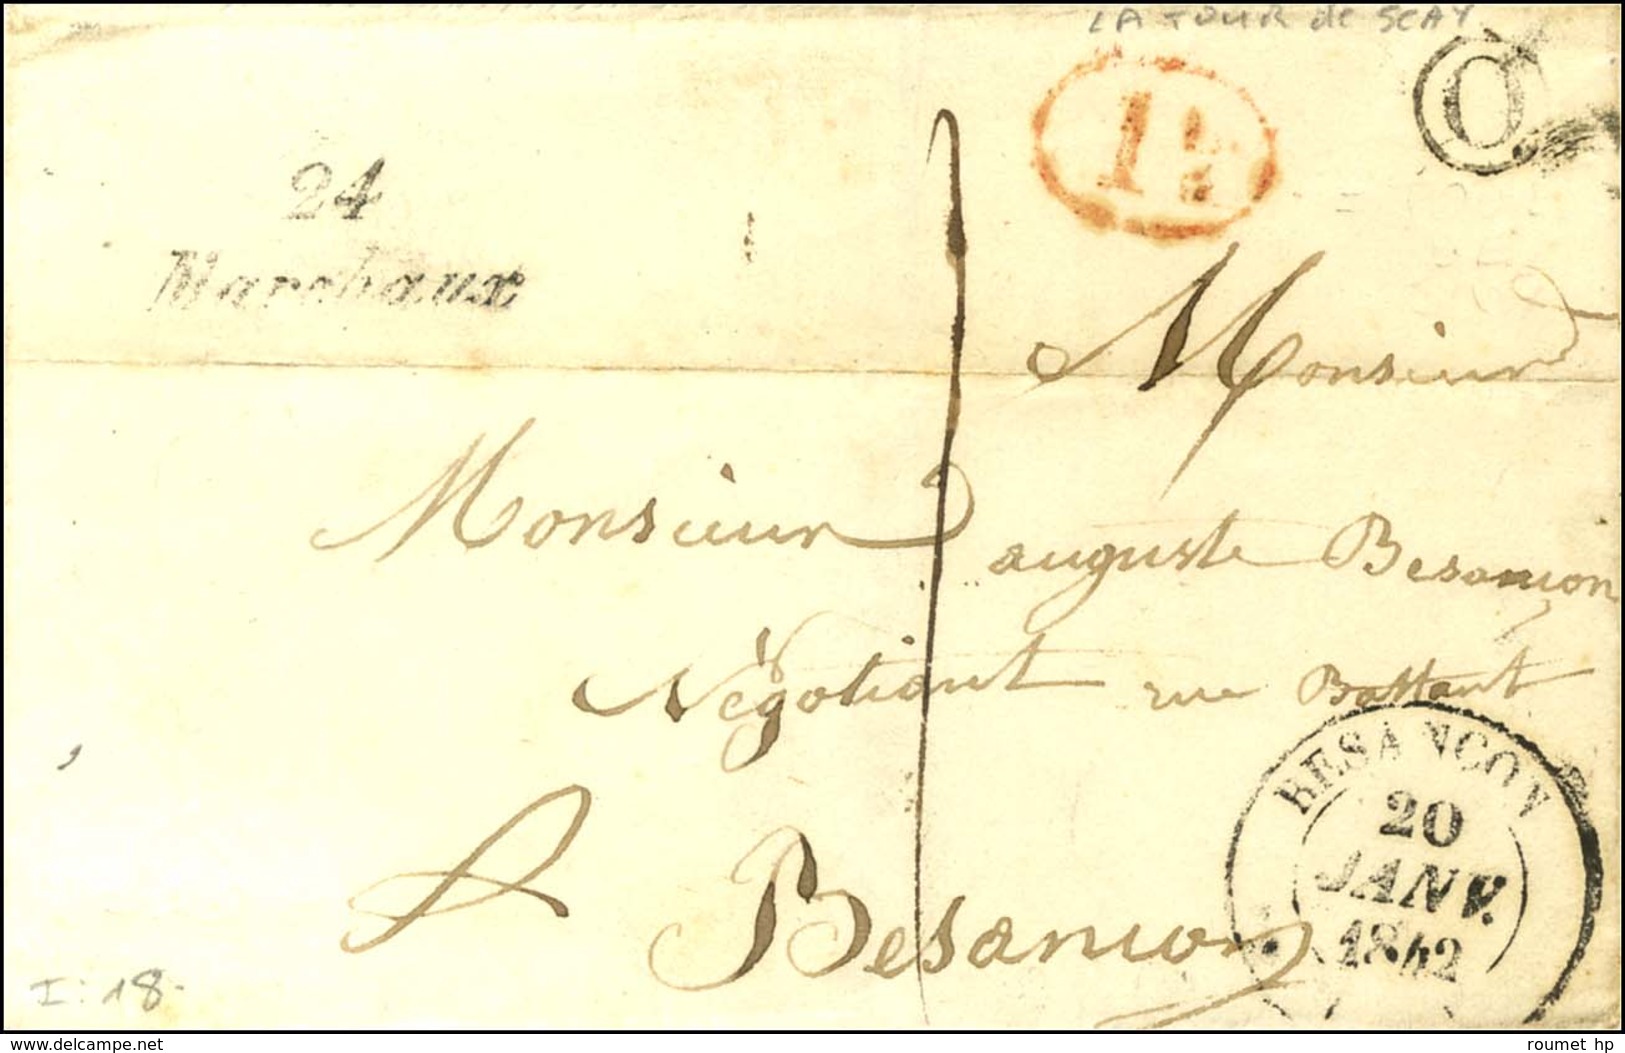 LA TOUR de SCAY
O
1 1/2
24
Marchaux
Monsieur
Monsieur
auguste Besançon
Négotiant rue Battant
A Besançon
BESANÇON
20
JANV.
1842
I: 18-
www.delcampe.net
roumet hp